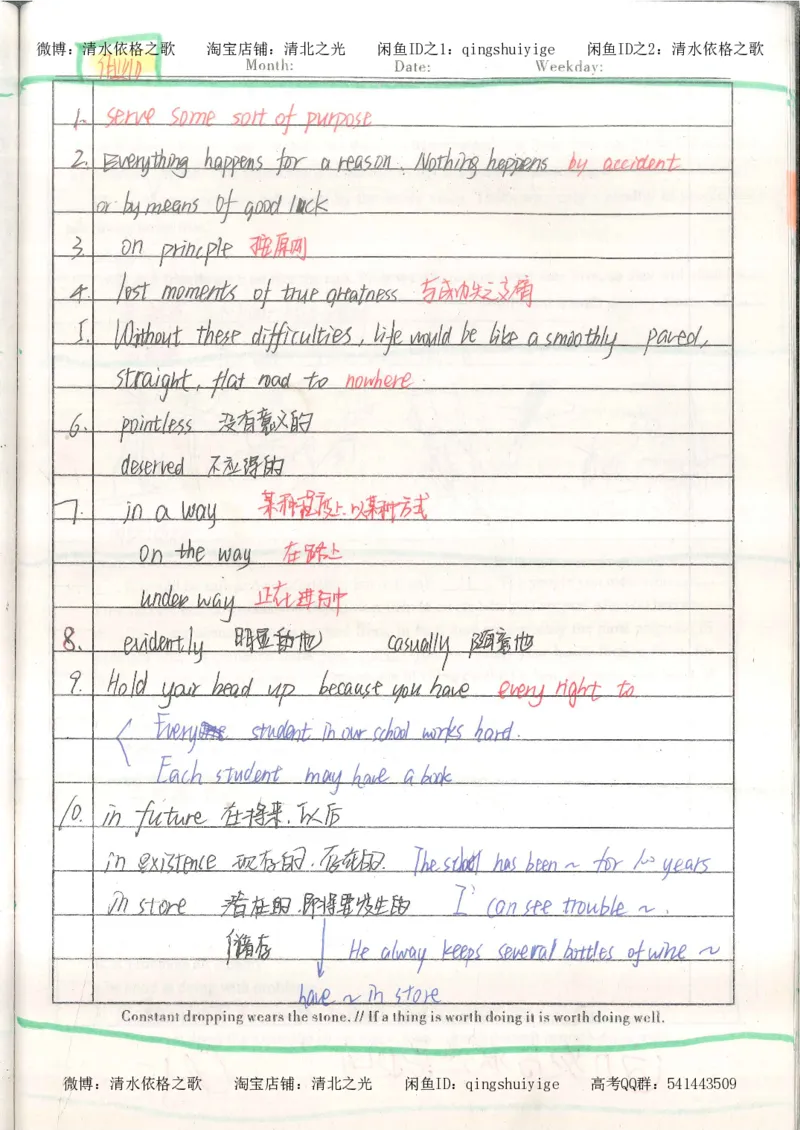 微博：清水依格之歌 淘宝店铺：清北之光 闲鱼ID之1：qingshuiyige 闲鱼ID之2：清水依格之歌
Month: Date: Weekday:
1. serve some sort of purpose
2. Everything happens for a reason. Nothing happens by accident
or by means of good luck
3. on principle 按原则
4. lost moments of true greatness 与成功失之交臂
5. Without these difficulties, life would be like a smoothly paved,
straight, flat road to nowhere.
6. pointless 没有意义的
deserved 不应得的
7. in a way 某种程度上.以某种方式
on the way 在路上
under way 正在进行中
8. evidently 明显的地 casually 随意地
9. Hold your head up because you have every right to
Every student in our school works hard.
Each student may have a book
10. in future 在将来.以后
in existence 现存的.存在的. The school has been ~ for 100 years
in store 潜在的.即将要发生的 I can see trouble ~.
储存 He alway keeps several bottles of wine ~
have ~ in store
Constant dropping wears the stone. // If a thing is worth doing it is worth doing well.
微博：清水依格之歌 淘宝店铺：清北之光 闲鱼ID：qingshuiyige 高考QQ群：541443509